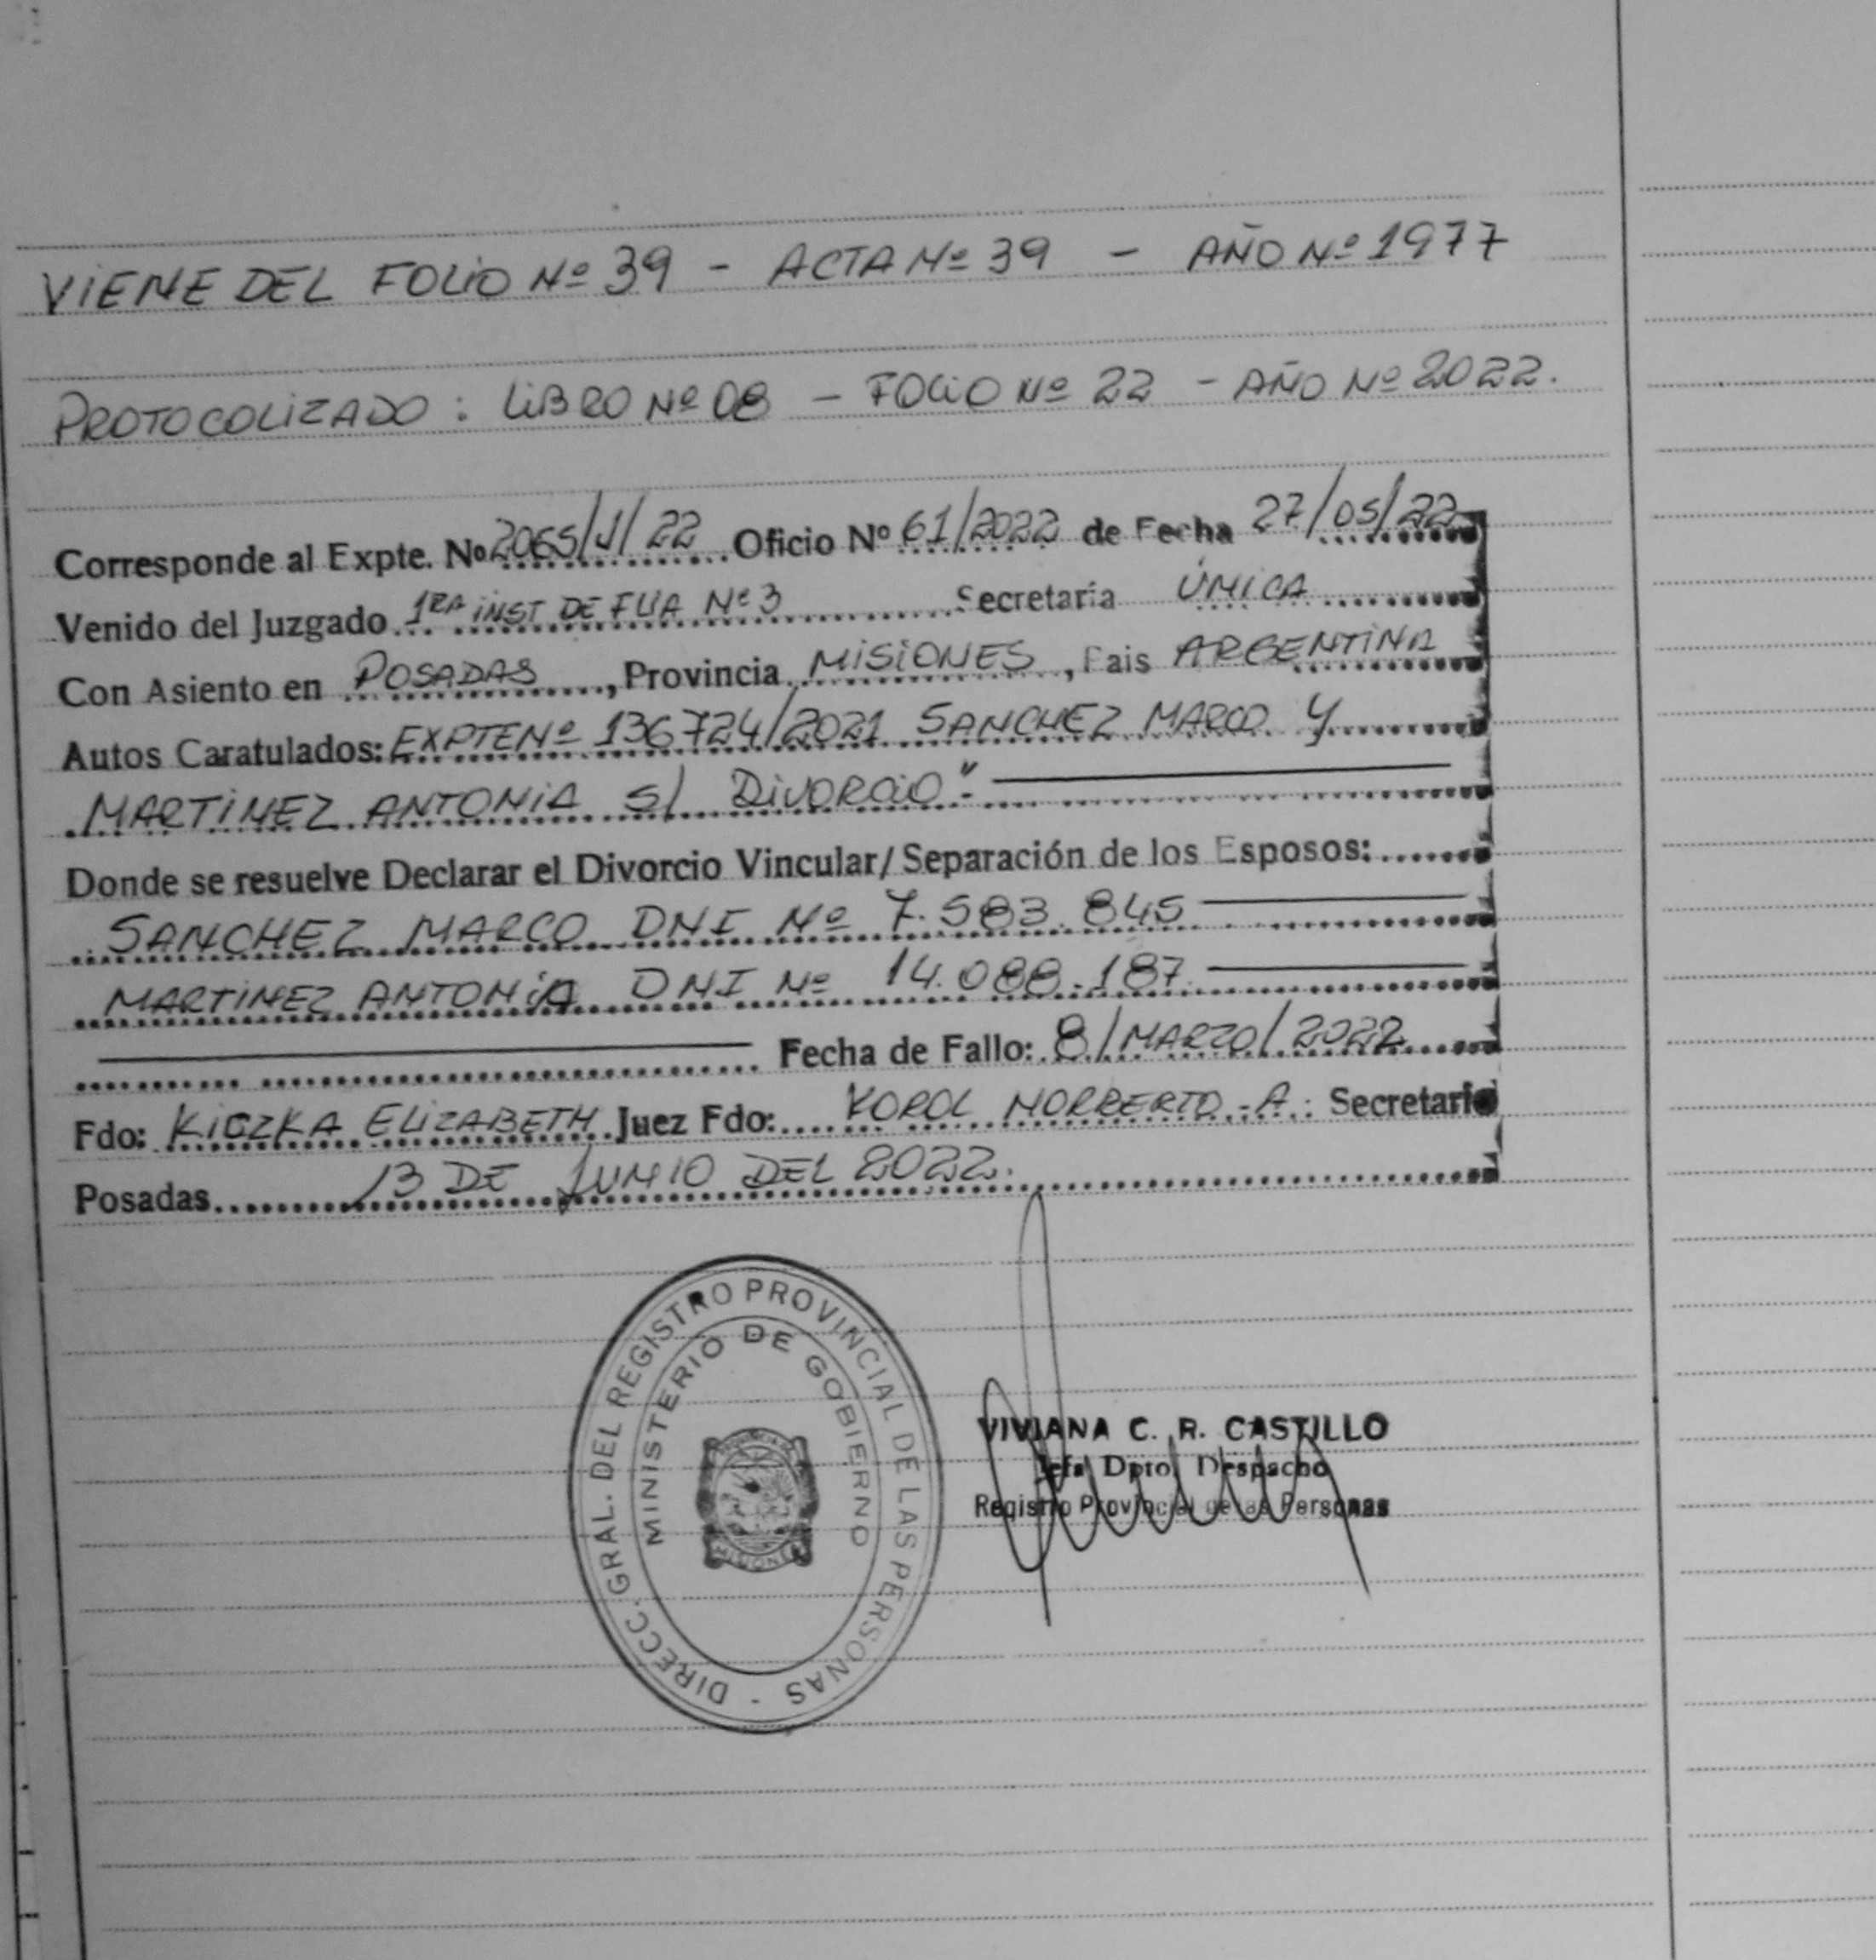 VIENE DEL FOLIO Nº 39 - ACTA Nº 39 - AÑO Nº 1977
PROTOCOLIZADO: LIBRO Nº 08 - FOLIO Nº 22 - AÑO Nº 2022.
Corresponde al Expte. Nº 2065/J/22 Oficio Nº 61/2022 de Fecha 27/05/22
Venido del Juzgado 1RA INST DE FLIA Nº 3 Secretaría ÚNICA
Con Asiento en POSADAS, Provincia MISIONES, Pais ARGENTINA
Autos Caratulados: EXPTE Nº 136724/2021 SANCHEZ MARCO Y
MARTINEZ ANTONIA S/ DIVORCIO"
Donde se resuelve Declarar el Divorcio Vincular/Separación de los Esposos:
SANCHEZ MARCO DNI Nº 7.583.845
MARTINEZ ANTONIA DNI Nº 14.088.187
Fecha de Fallo: 8/MARZO/2022
Fdo: KICZKA ELIZABETH Juez Fdo: KOROL NORBERTO A. Secretario
Posadas 13 DE JUNIO DEL 2022.
DIRECC. GRAL. DEL REGISTRO PROVINCIAL DE LAS PERSONAS -
MINISTERIO DE GOBIERNO
PROVINCIA DE
MISIONES
VIVIANA C. R. CASTILLO
Jefa Dpto. Despacho
Registro Provincial de las Personas